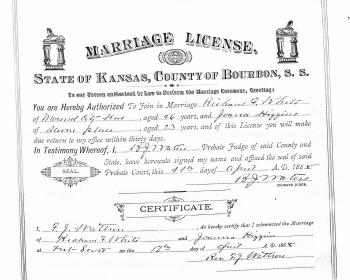 MARRIAGE LICENSE,
STATE OF KANSAS, COUNTY OF BOURBON, S. S.
To any Person authorized by Law to Perform the Marriage Ceremony, Greeting:
You are Hereby Authorized To Join in Marriage Richard F. White
of Mound City Kas aged 26 years, and Joanna Higgins
of same place aged 23 years, and of this License you will make
due return to my office within thirty days.
In Testimony Whereof, I, Probate Judge of said County and
State, have hereunto signed my name and affixed the seal of said
Probate Court, this 11th day of April A. D. 188
SEAL
PROBATE JUDGE.
CERTIFICATE.
I, do hereby certify that I solemnized the Marriage
of Richard F White and Joanna Higgins
at Fort Scott on the 12th day of April A. D. 188
Rev.